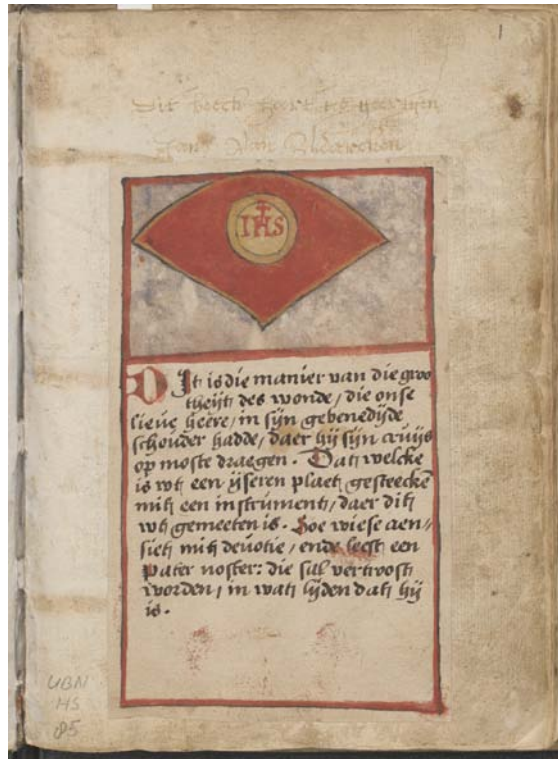 1
Dit boeck hoert
Jan Van
IHS
DIt is die manier van die groo
theijt des wonde / die onse
lieve heere / in sijn gebenedijde
schouder hadde / daer hij sijn cruijs
op moste draegen. Dat welcke
is wt een ijseren plaet gesteecken
mit een instrument / daer dit
wt gemeeten is. Soe wiese aen //
siet mit devotie / ende leest een
pater noster: die sal vertroost
worden / in wat lijden dat hij
is.
UBN
HS
85